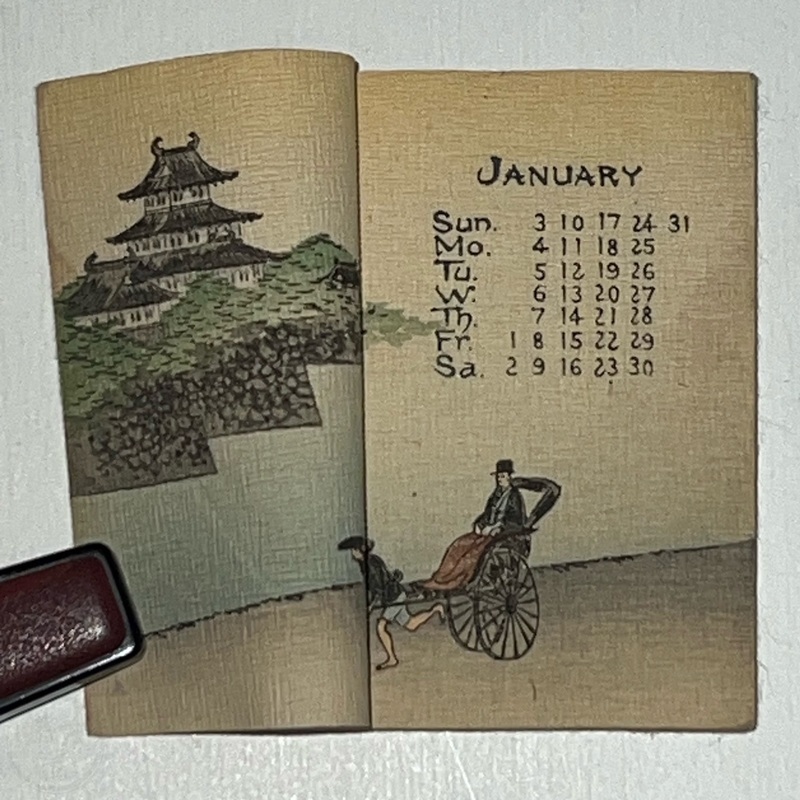 JANUARY
Sun. 3 10 17 24 31
Mo. 4 11 18 25
Tu. 5 12 19 26
W. 6 13 20 27
Th. 7 14 21 28
Fr. 1 8 15 22 29
Sa. 2 9 16 23 30